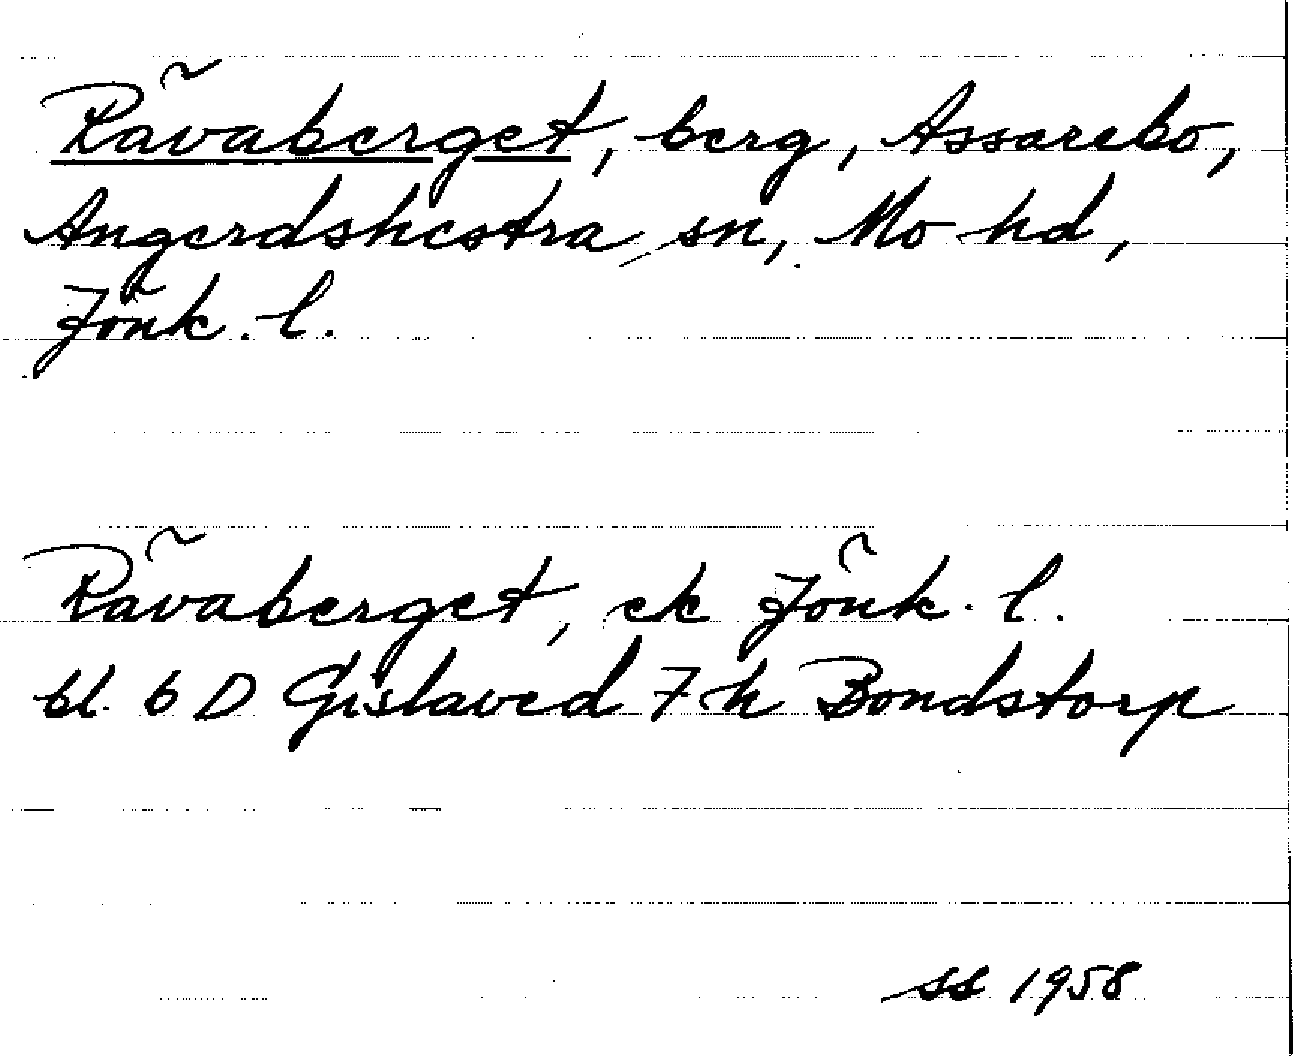 Rävaberget, berg, Assarebo,
Angerdshestra sn, Mo hd,
Jönk. l.
Rävaberget, ek Jönk. l.
bl. 6 D Gislaved 7 h Bondstorp
SS 1958